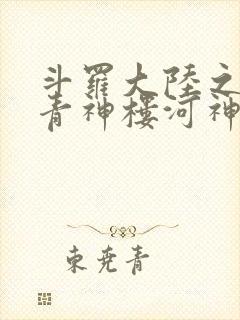 斗羅大陸之
青神樓河神
東堯青